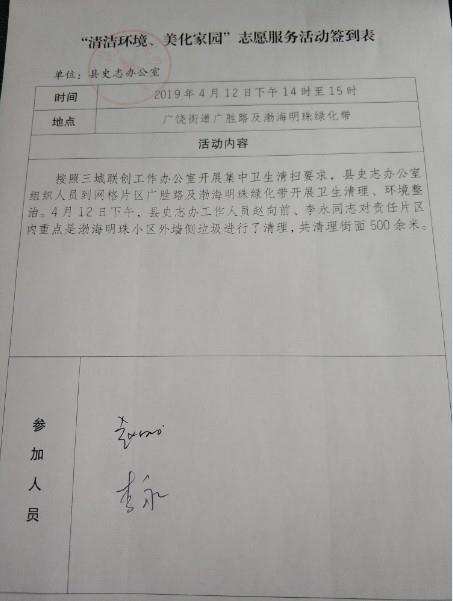 “清洁环境、美化家园”志愿服务活动签到表
单位：县史志办公室
时间 2019年4月12日下午14时至15时
地点 广饶街道广胜路及渤海明珠绿化带
活动内容
按照三城联创工作办公室开展集中卫生清扫要求，县史志办公室
组织人员到网格片区广胜路及渤海明珠绿化带开展卫生清理、环境整
治。4月12日下午，县史志办工作人员赵向前、李永同志对责任片区
内重点是渤海明珠小区外墙侧垃圾进行了清理，共清理街面500余米。
参加人员
李永